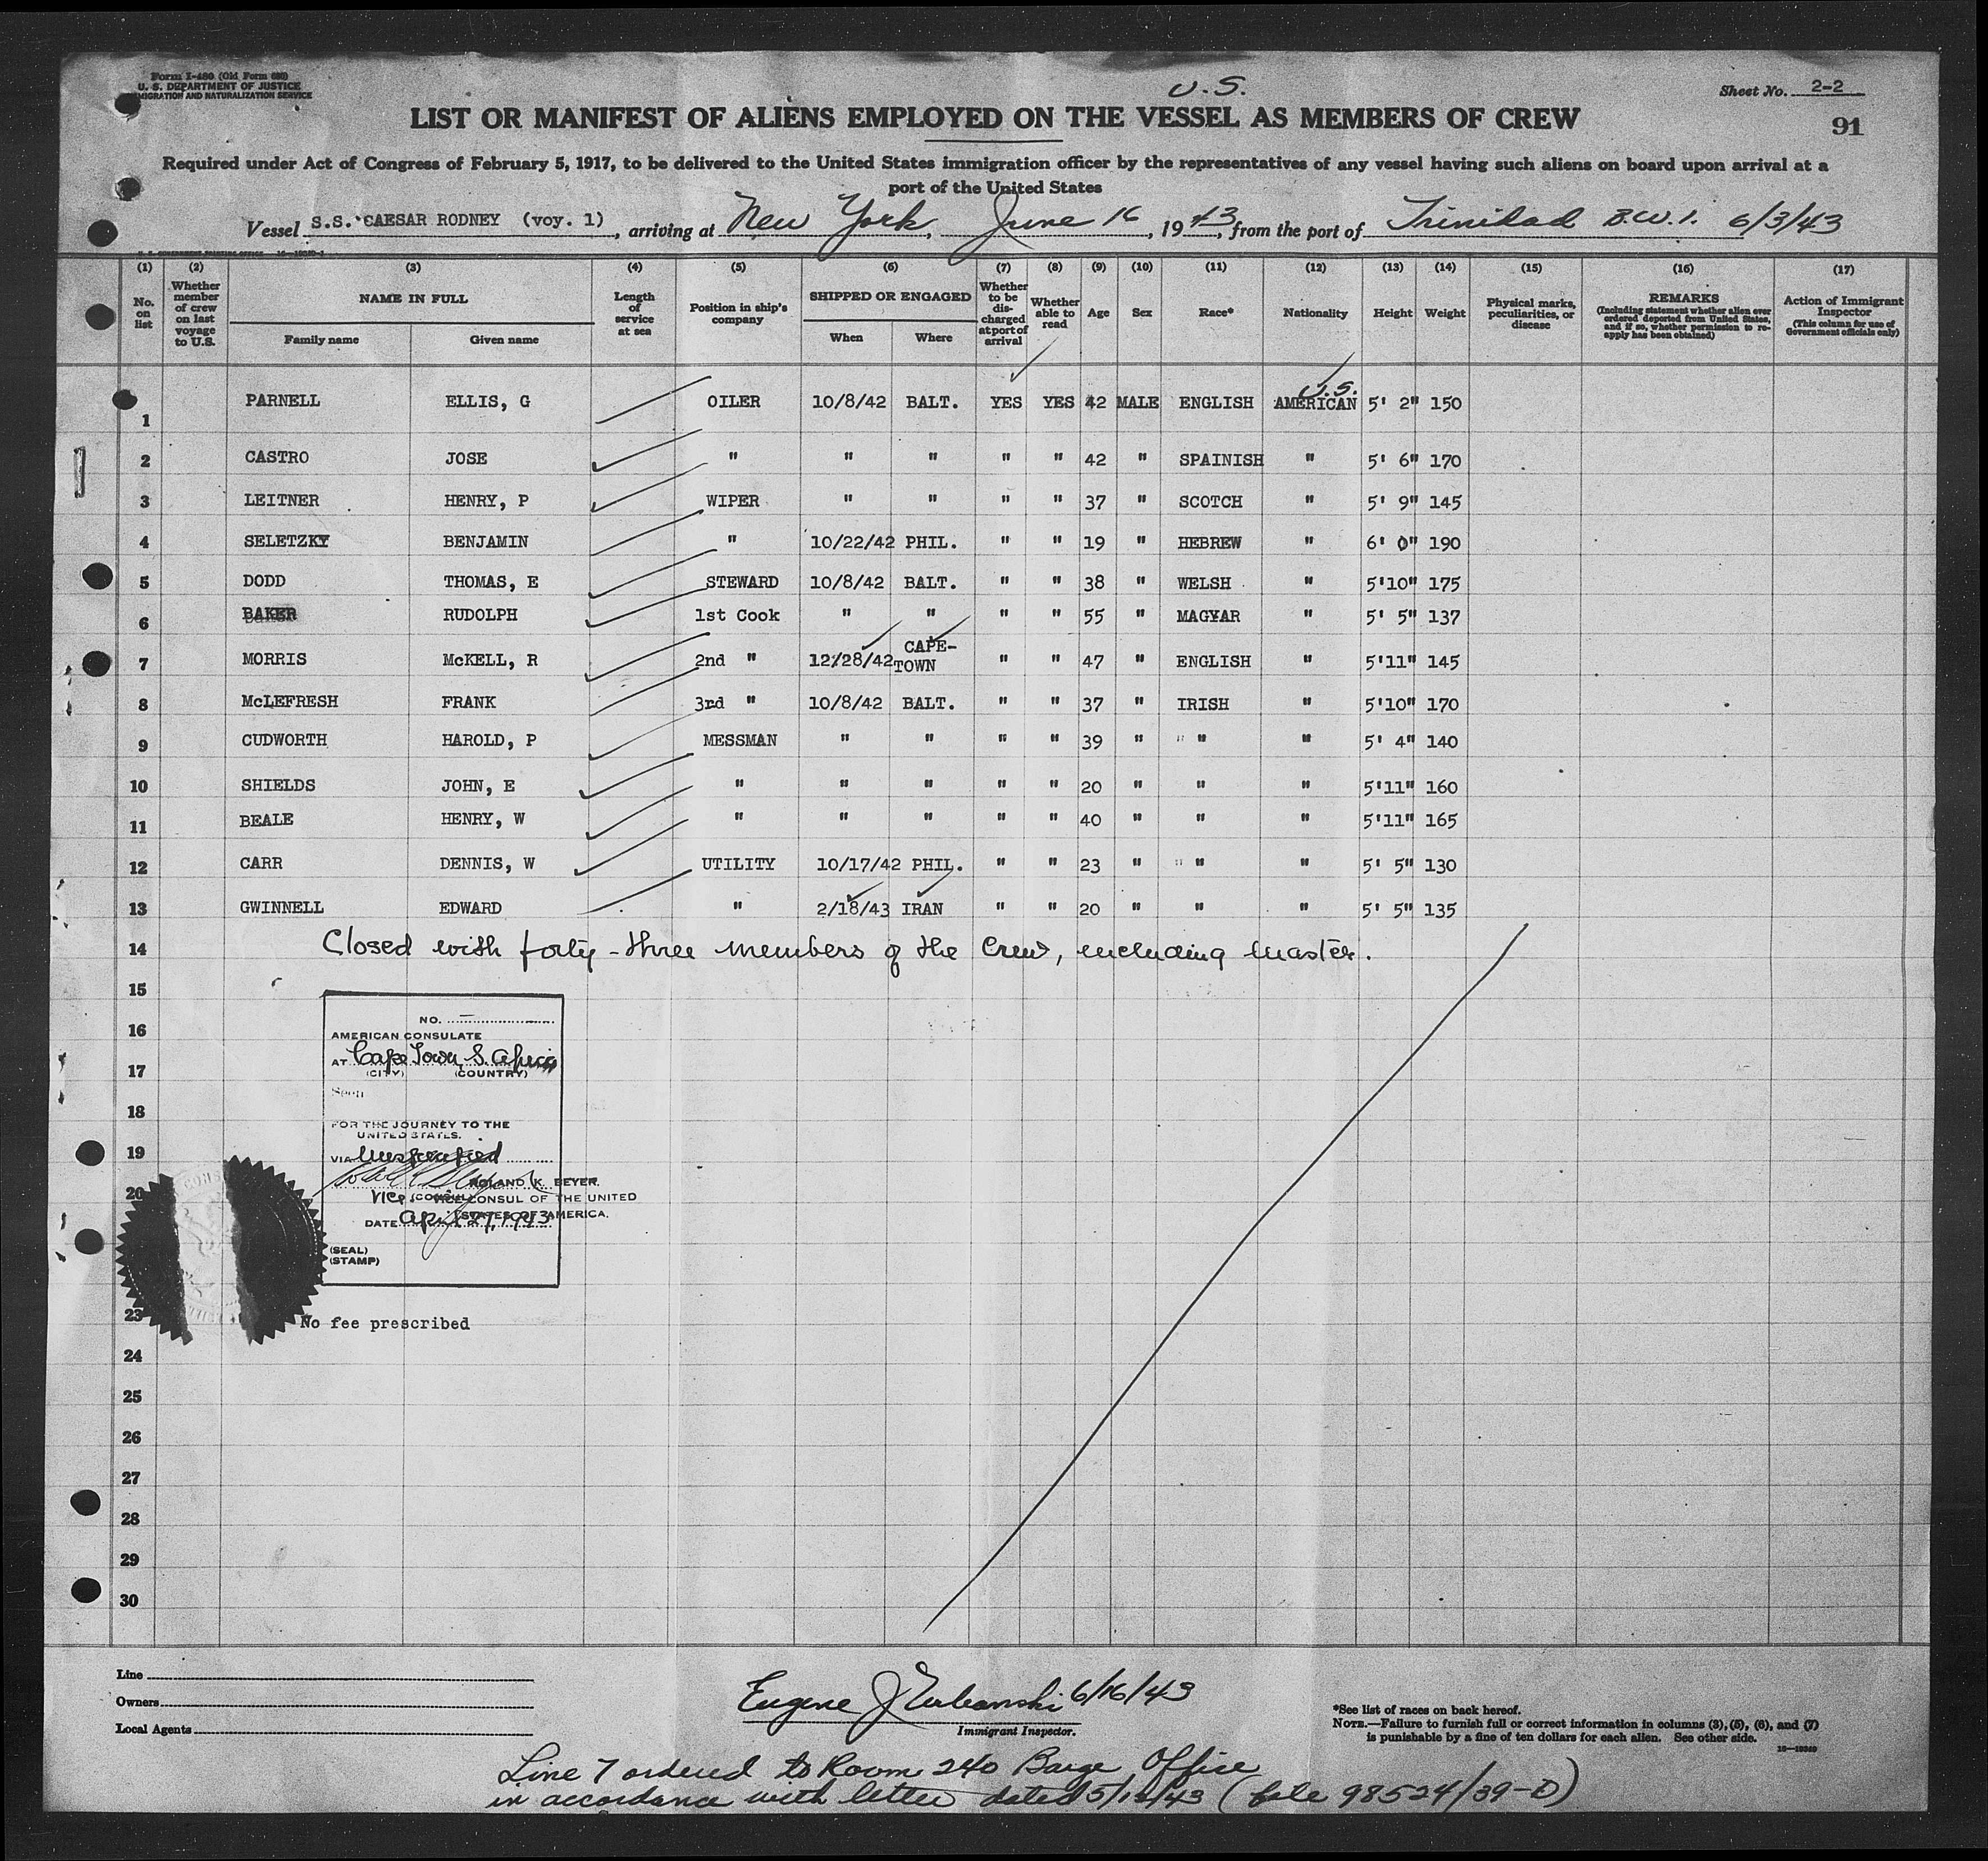 Form I-480 (Old Form 680)
U. S. DEPARTMENT OF JUSTICE
IMMIGRATION AND NATURALIZATION SERVICE
U.S.
Sheet No. 2-2
LIST OR MANIFEST OF ALIENS EMPLOYED ON THE VESSEL AS MEMBERS OF CREW
91
Required under Act of Congress of February 5, 1917, to be delivered to the United States immigration officer by the representatives of any vessel having such aliens on board upon arrival at a
port of the United States
Vessel S.S. CAESAR RODNEY (voy. 1), arriving at New York, June 16, 1943, from the port of Trinidad B.W.I. 6/3/43
(1) (2) (3) (4) (5) (6) (7) (8) (9) (10) (11) (12) (13) (14) (15) (16) (17)
No. on list
Whether member of crew on last voyage to U.S.
NAME IN FULL
Family name Given name
Length of service at sea
Position in ship's company
SHIPPED OR ENGAGED
When Where
Whether to be discharged at port of arrival
Whether able to read
Age
Sex
Race*
Nationality
Height
Weight
Physical marks, peculiarities, or disease
REMARKS
(Including statement whether alien ever ordered deported from United States, and if so, whether permission to reapply has been obtained)
Action of Immigrant Inspector
(This column for use of Government officials only)
U.S.
1 PARNELL ELLIS, G OILER 10/8/42 BALT. YES YES 42 MALE ENGLISH AMERICAN 5' 2" 150
2 CASTRO JOSE " " " " " 42 " SPAINISH " 5' 6" 170
3 LEITNER HENRY, P WIPER " " " " 37 " SCOTCH " 5' 9" 145
4 SELETZKY BENJAMIN " 10/22/42 PHIL. " " 19 " HEBREW " 6' 0" 190
5 DODD THOMAS, E STEWARD 10/8/42 BALT. " " 38 " WELSH " 5'10" 175
6 BAKER RUDOLPH 1st Cook " " " " 55 " MAGYAR " 5' 5" 137
7 MORRIS McKELL, R 2nd " 12/28/42 CAPE-TOWN " " 47 " ENGLISH " 5'11" 145
8 McLEFRESH FRANK 3rd " 10/8/42 BALT. " " 37 " IRISH " 5'10" 170
9 CUDWORTH HAROLD, P MESSMAN " " " " 39 " " " 5' 4" 140
10 SHIELDS JOHN, E " " " " " 20 " " " 5'11" 160
11 BEALE HENRY, W " " " " " 40 " " " 5'11" 165
12 CARR DENNIS, W UTILITY 10/17/42 PHIL. " " 23 " " " 5' 5" 130
13 GWINNELL EDWARD " 2/18/43 IRAN " " 20 " " " 5' 5" 135
14 Closed with forty-three members of the Crew, including master.
15
16
17
18
19
20
23
24
25
26
27
28
29
30
NO.
AMERICAN CONSULATE
AT Cape Town, S. Africa
(CITY) (COUNTRY)
Seen
FOR THE JOURNEY TO THE
UNITED STATES.
VIA Unspecified
ROLAND K. BEYER.
Vice (CONSUL) VICE CONSUL OF THE UNITED
STATES OF AMERICA.
DATE April 27, 1943
(SEAL)
(STAMP)
No fee prescribed
Line
Owners
Local Agents
Eugene J 6/16/43
Immigrant Inspector.
*See list of races on back hereof.
NOTE.—Failure to furnish full or correct information in columns (3), (5), (6), and (7)
is punishable by a fine of ten dollars for each alien. See other side.
Line 7 ordered to Room 240 Barge Office
in accordance with letter dated (file 98524/39-D)